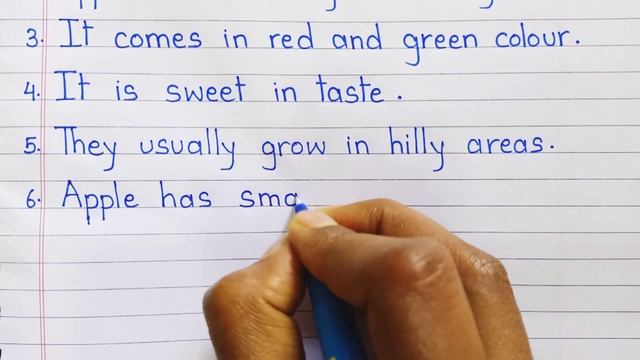 3. It comes in red and green colour.
4. It is sweet in taste.
5. They usually grow in hilly areas.
6. Apple has sma